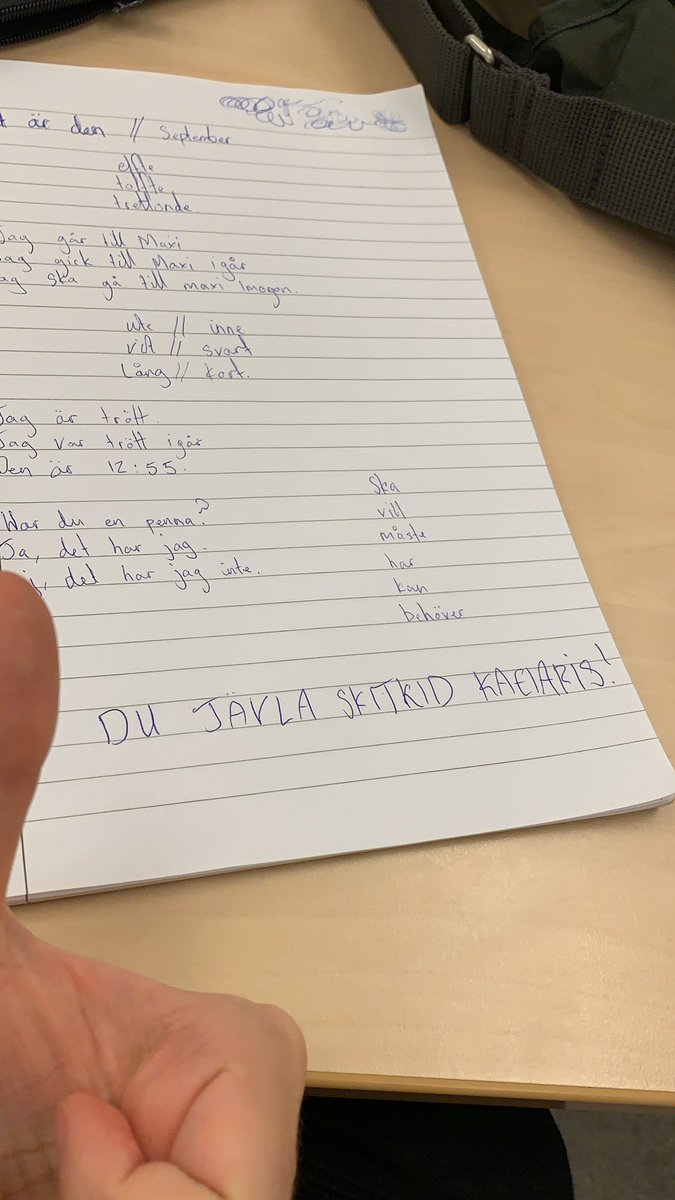 t är den 11 September
elfte
tolfte
trettonde
Jag går till Maxi
ag gick till Maxi igår
ag ska gå till maxi imogen.
ute // inne
vit // svart
Lång // kort.
Jag är trött.
Jag var trött igår
Den är 12:55.
Har du en penna?
Ja, det har jag.
j, det har jag inte.
Ska
vill
måste
har
kan
behöver
DU JÄVLA SKITKID